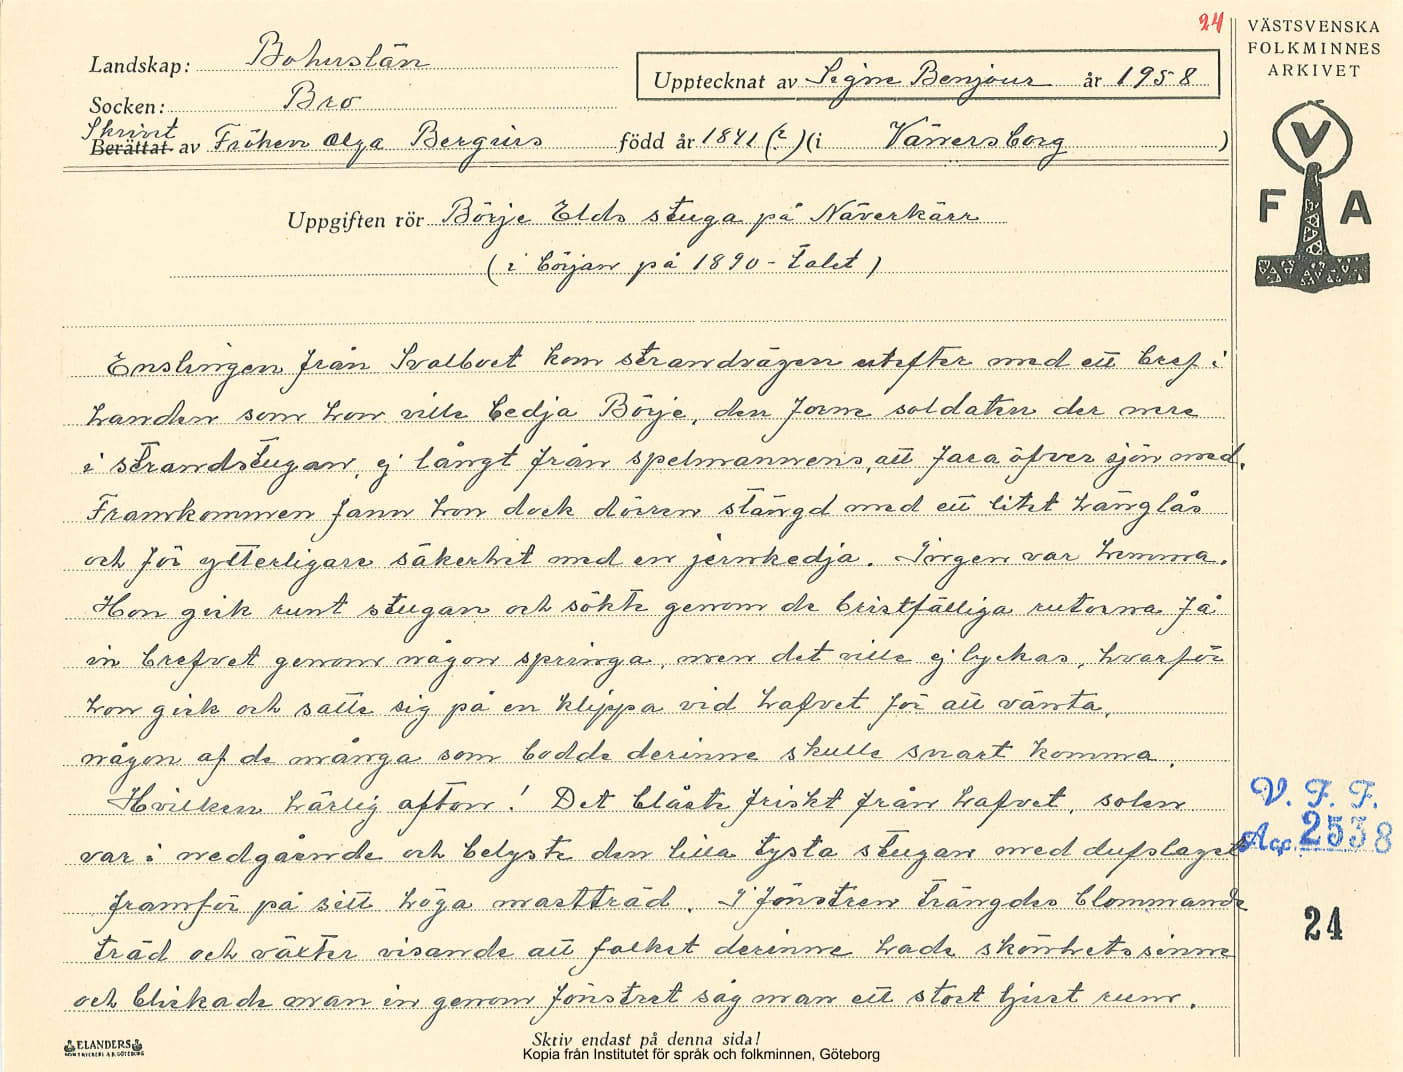 24
VÄSTSVENSKA
FOLKMINNES
ARKIVET
Landskap: Bohuslän
Upptecknat av Signe Benjour år 1958
Socken: Bro
Skrivit
Berättat av Fröken Olga Bergius född år 1841 (?) (i Vänersborg )
Uppgiften rör Börje Elds stuga på Näverkärr
( i början på 1890-talet )
V
F A
Enslingen från Svalboet kom strandvägen utefter med ett bref i
handen som hon ville bedja Börje, den forne soldaten der nere
i strandstugan, ej långt från spelmannens, att fara öfver sjön med.
Framkommen fann hon dock dörren stängd med ett litet hänglås
och för ytterligare säkerhet med en jernkedja. Ingen var hemma.
Hon gick runt stugan och sökte genom de bristfälliga rutorna få
in brefvet genom någon springa, men det ville ej lyckas, hvarför
hon gick och satte sig på en klippa vid hafvet för att vänta,
någon af de många som bodde derinne skulle snart komma.
Hvilken härlig afton! Det blåste friskt från hafvet, solen
var i nedgående och belyste den lilla tysta stugan med dufslaget
framför på sitt höga mastträd. I fönstren trängdes blommande
träd och växter visande att folket derinne hade skönhetssinne
och blickade man in genom fönstret såg man ett stort ljust rum.
V. F. F.
Acc. 2538
24
ELANDERS
BOKTRYCKERI A.B. GÖTEBORG
Skriv endast på denna sida!
Kopia från Institutet för språk och folkminnen, Göteborg